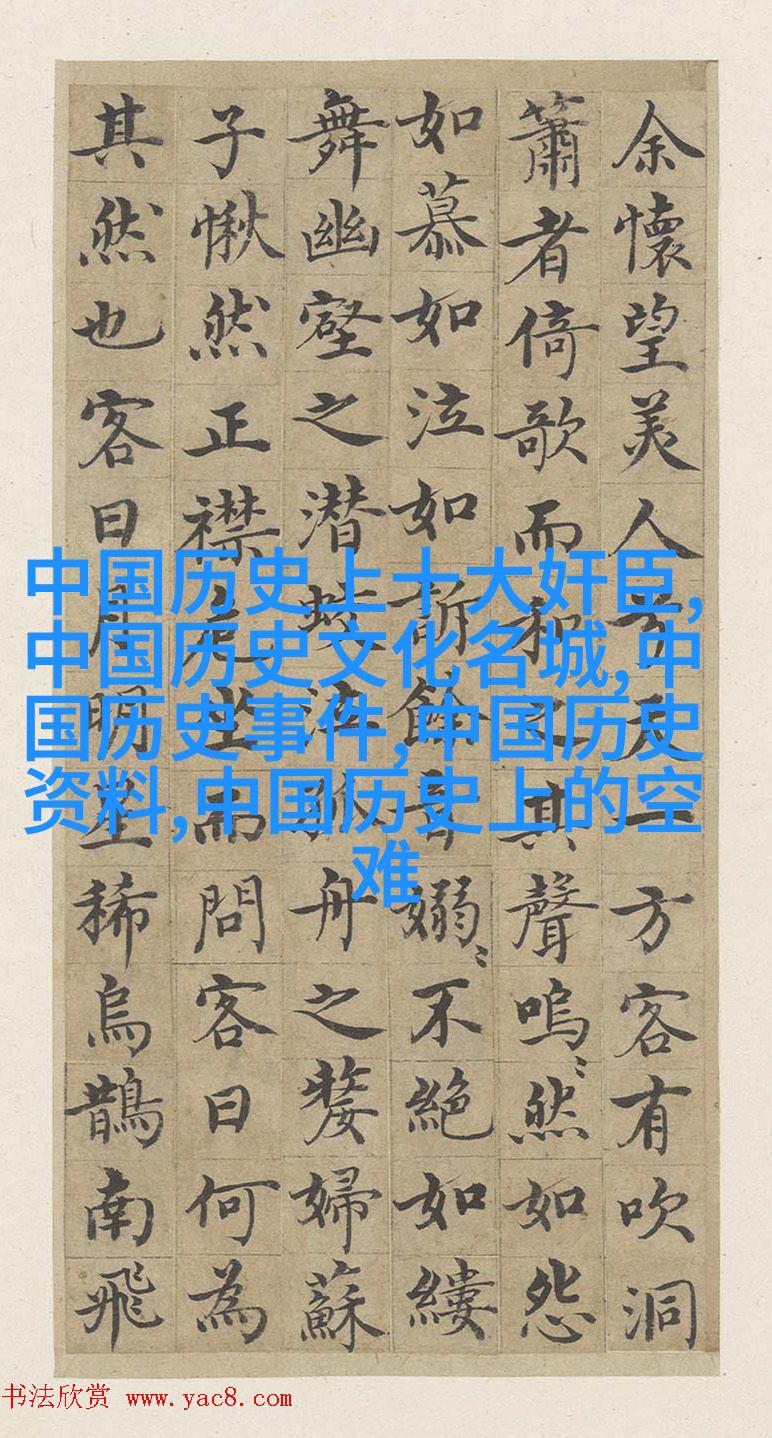 余懷望美人兮天一方客有吹洞
簫者倚歌而和之其聲嗚〻然如怨
如慕如泣如訴餘音嫋〻不絕如縷
舞幽壑之潜蛟泣孤舟之嫠婦蘇
子愀然正襟危坐而問客曰何為
其然也客曰月明星稀烏鵲南飛
中国历史上十大奸臣,
中国历史文化名城,中
国历史事件,中国历史
资料,中国历史上的空
难
书法欣赏 www.yac8.com